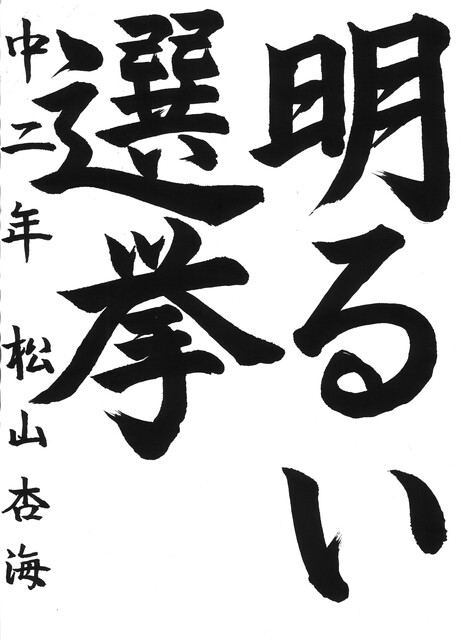 明るい
選挙
中二年 松山杏海